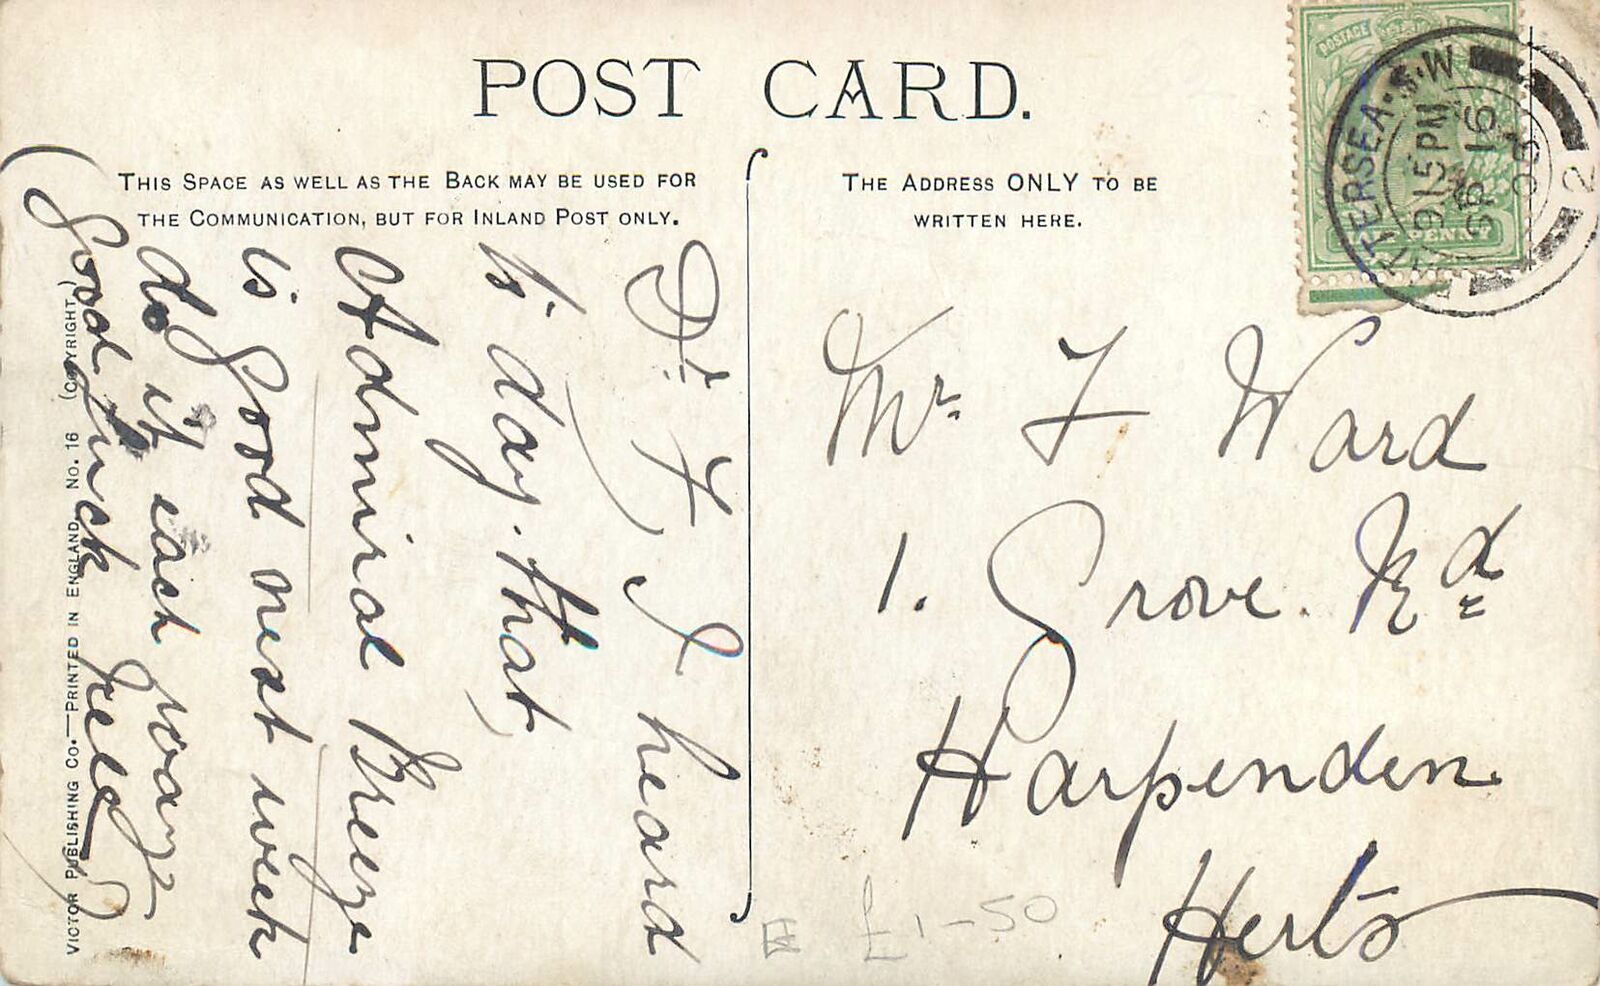 POST CARD.
THIS SPACE AS WELL AS THE BACK MAY BE USED FOR
THE COMMUNICATION, BUT FOR INLAND POST ONLY.
THE ADDRESS ONLY TO BE
WRITTEN HERE.
POSTAGE
BATTERSEA. S.W.
9 15 PM
SP 16
2
Dr F, I heard
to day. that
Admiral Breeze
is good next week
do it each way
good luck
Mr F Ward
1. Grove Rd
Harpenden
Herts
£1-50
VICTOR PUBLISHING CO.—PRINTED IN ENGLAND. NO. 16 (COPYRIGHT)